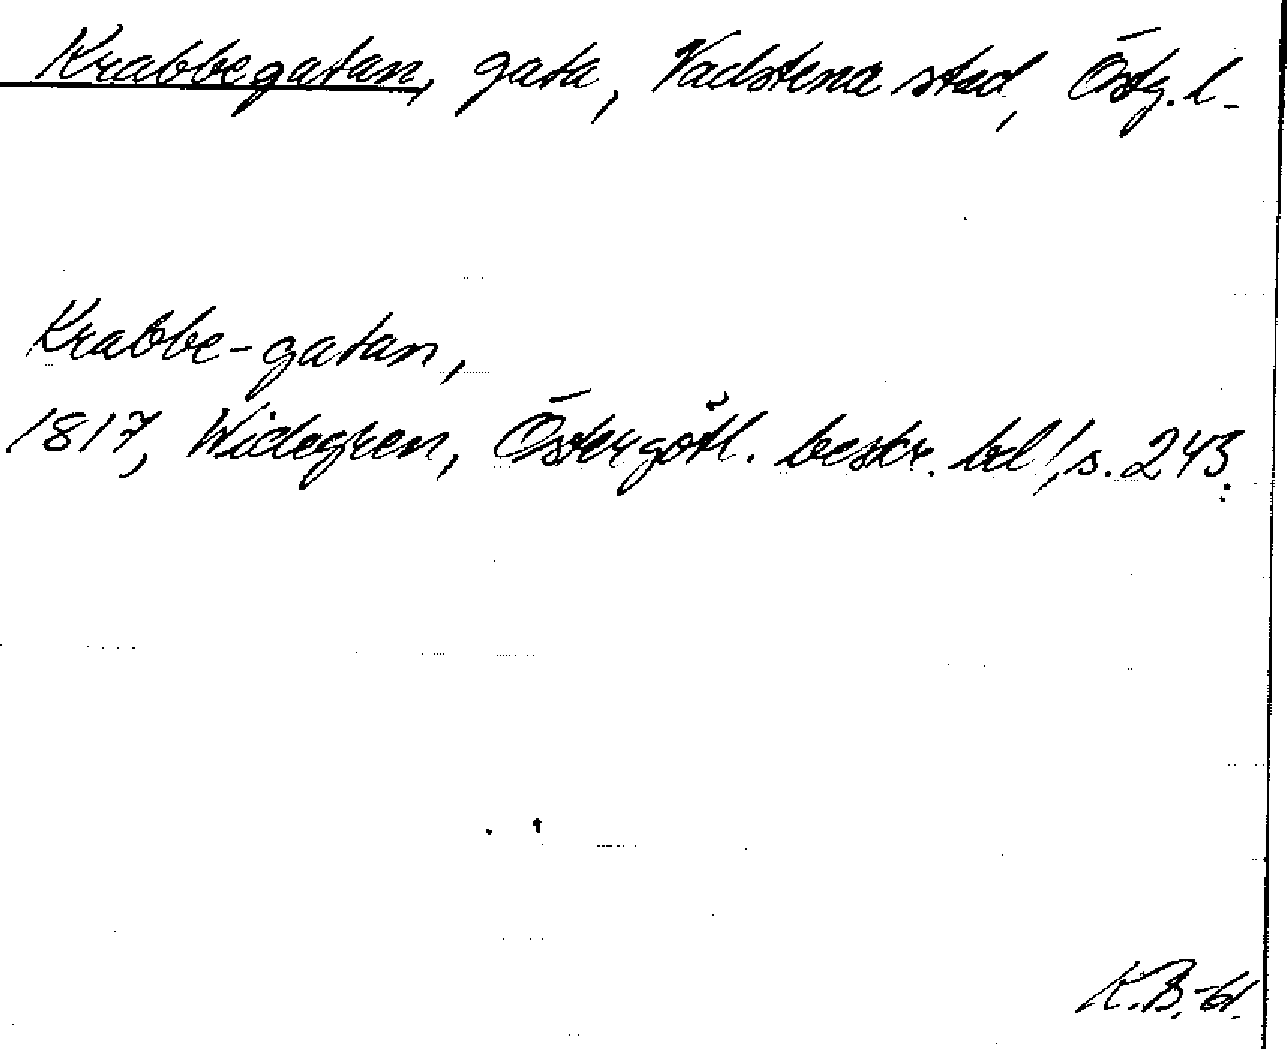 Krabbegatan, gata, Vadstena stad, Östg. l.
Krabbe-gatan,
1817, Widegren, Östergötl. beskr. bd 1, s. 243.
K.B.-61.